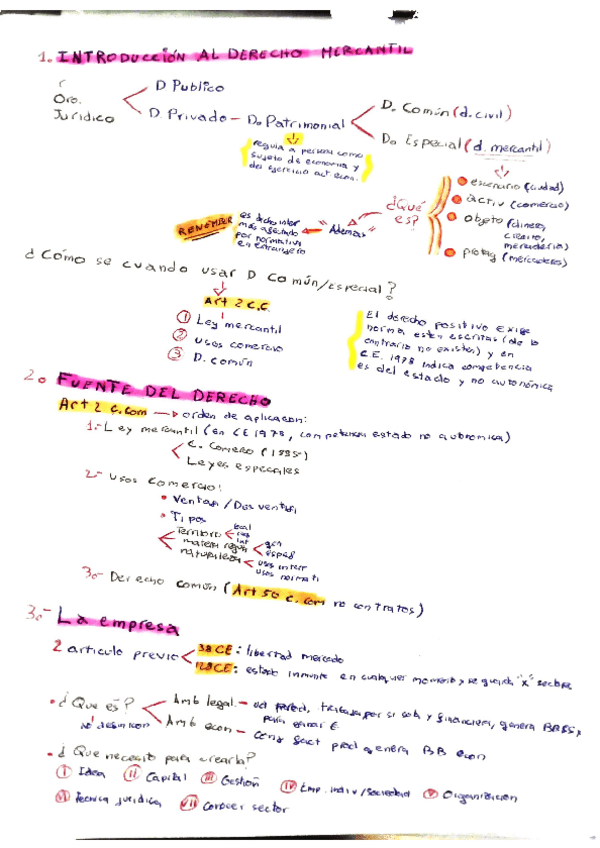 1. INTRODUCCIÓN AL DERECHO MERCANTIL
Oro. Jurídico
D Publico
D. Privado - Do Patrimonial
Do Común (d. civil)
Do Especial (d. mercantil)
regula a persona como
sujeto de economia y
des ejercicio act econ.
¿Qué es?
escenario (ciudad)
activ (comercio)
objeto (dinero,
credito,
mercaderia)
protag (mercaderes)
"Además"
REMEMBER
es dcho inter
más afectado
por normativa
en extranjero
¿Cómo se cuando usar D Común/Especial?
Art 2 C.C.
① Ley mercantil
② usos comercio
③ D. común
El derecho positivo exige
norma esten escritas (de lo
contrario no existen) y en
C.E. 1978 indica competencia
es del estado y no autonómica
2.- FUENTE DEL DERECHO
Art 2 c.com → orden de aplicacion:
1.- Ley mercantil (en CE 1978, competencia estado no autonomica)
C. Comercio (1885)
Leyes especiales
2.- Usos comercio:
• Ventajas / Desventajas
• Tipos
Territorio
local
int
materia
gen
espec
naturaleza
usos interr
usos normati
3.- Derecho común (Art 50 c.com no contratos)
3.- La empresa
2 articulo previo
38 CE: libertad mercado
128 CE: estado en cualquier momento y se guarda "x" sectores
• ¿Que es?
no definicion
Amb legal. - trabaja por si solo y financiera, genera
para ganar €
Amb econ - prod genera BB econ
• ¿Que necesito para crearla?
Ⅰ Idea Ⅱ Capital Ⅲ Gestión Ⅳ Emp. indiv/sociedad Ⅴ Organización
Ⅵ Técnica jurídica Ⅶ Conocer sector